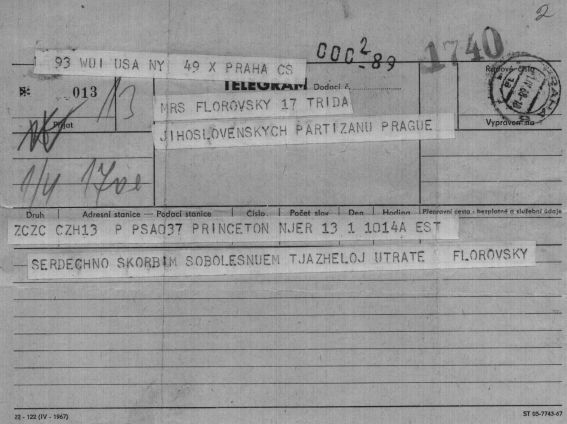 2
93 WUI USA NY 49 X PRAHA CS
1740
TELEGRAM Dodací č.
013
13
MRS FLOROVSKY 17 TRIDA
JIHOSLOVENSKYCH PARTIZANU PRAGUE
Přijat
Vypraven do
1/4 17oe
Druh Adresní stanice — Podací stanice Číslo Počet slov Den Hodina Přepravní cesta - bezplatné a služební údaje
ZCZC CZH13 P PSA037 PRINCETON NJER 13 1 1014A EST
SERDECHNO SKORBIM SOBOLESNUEM TJAZHELOJ UTRATE FLOROVSKY
22 - 122 (IV - 1967)
ST 05-7743-67